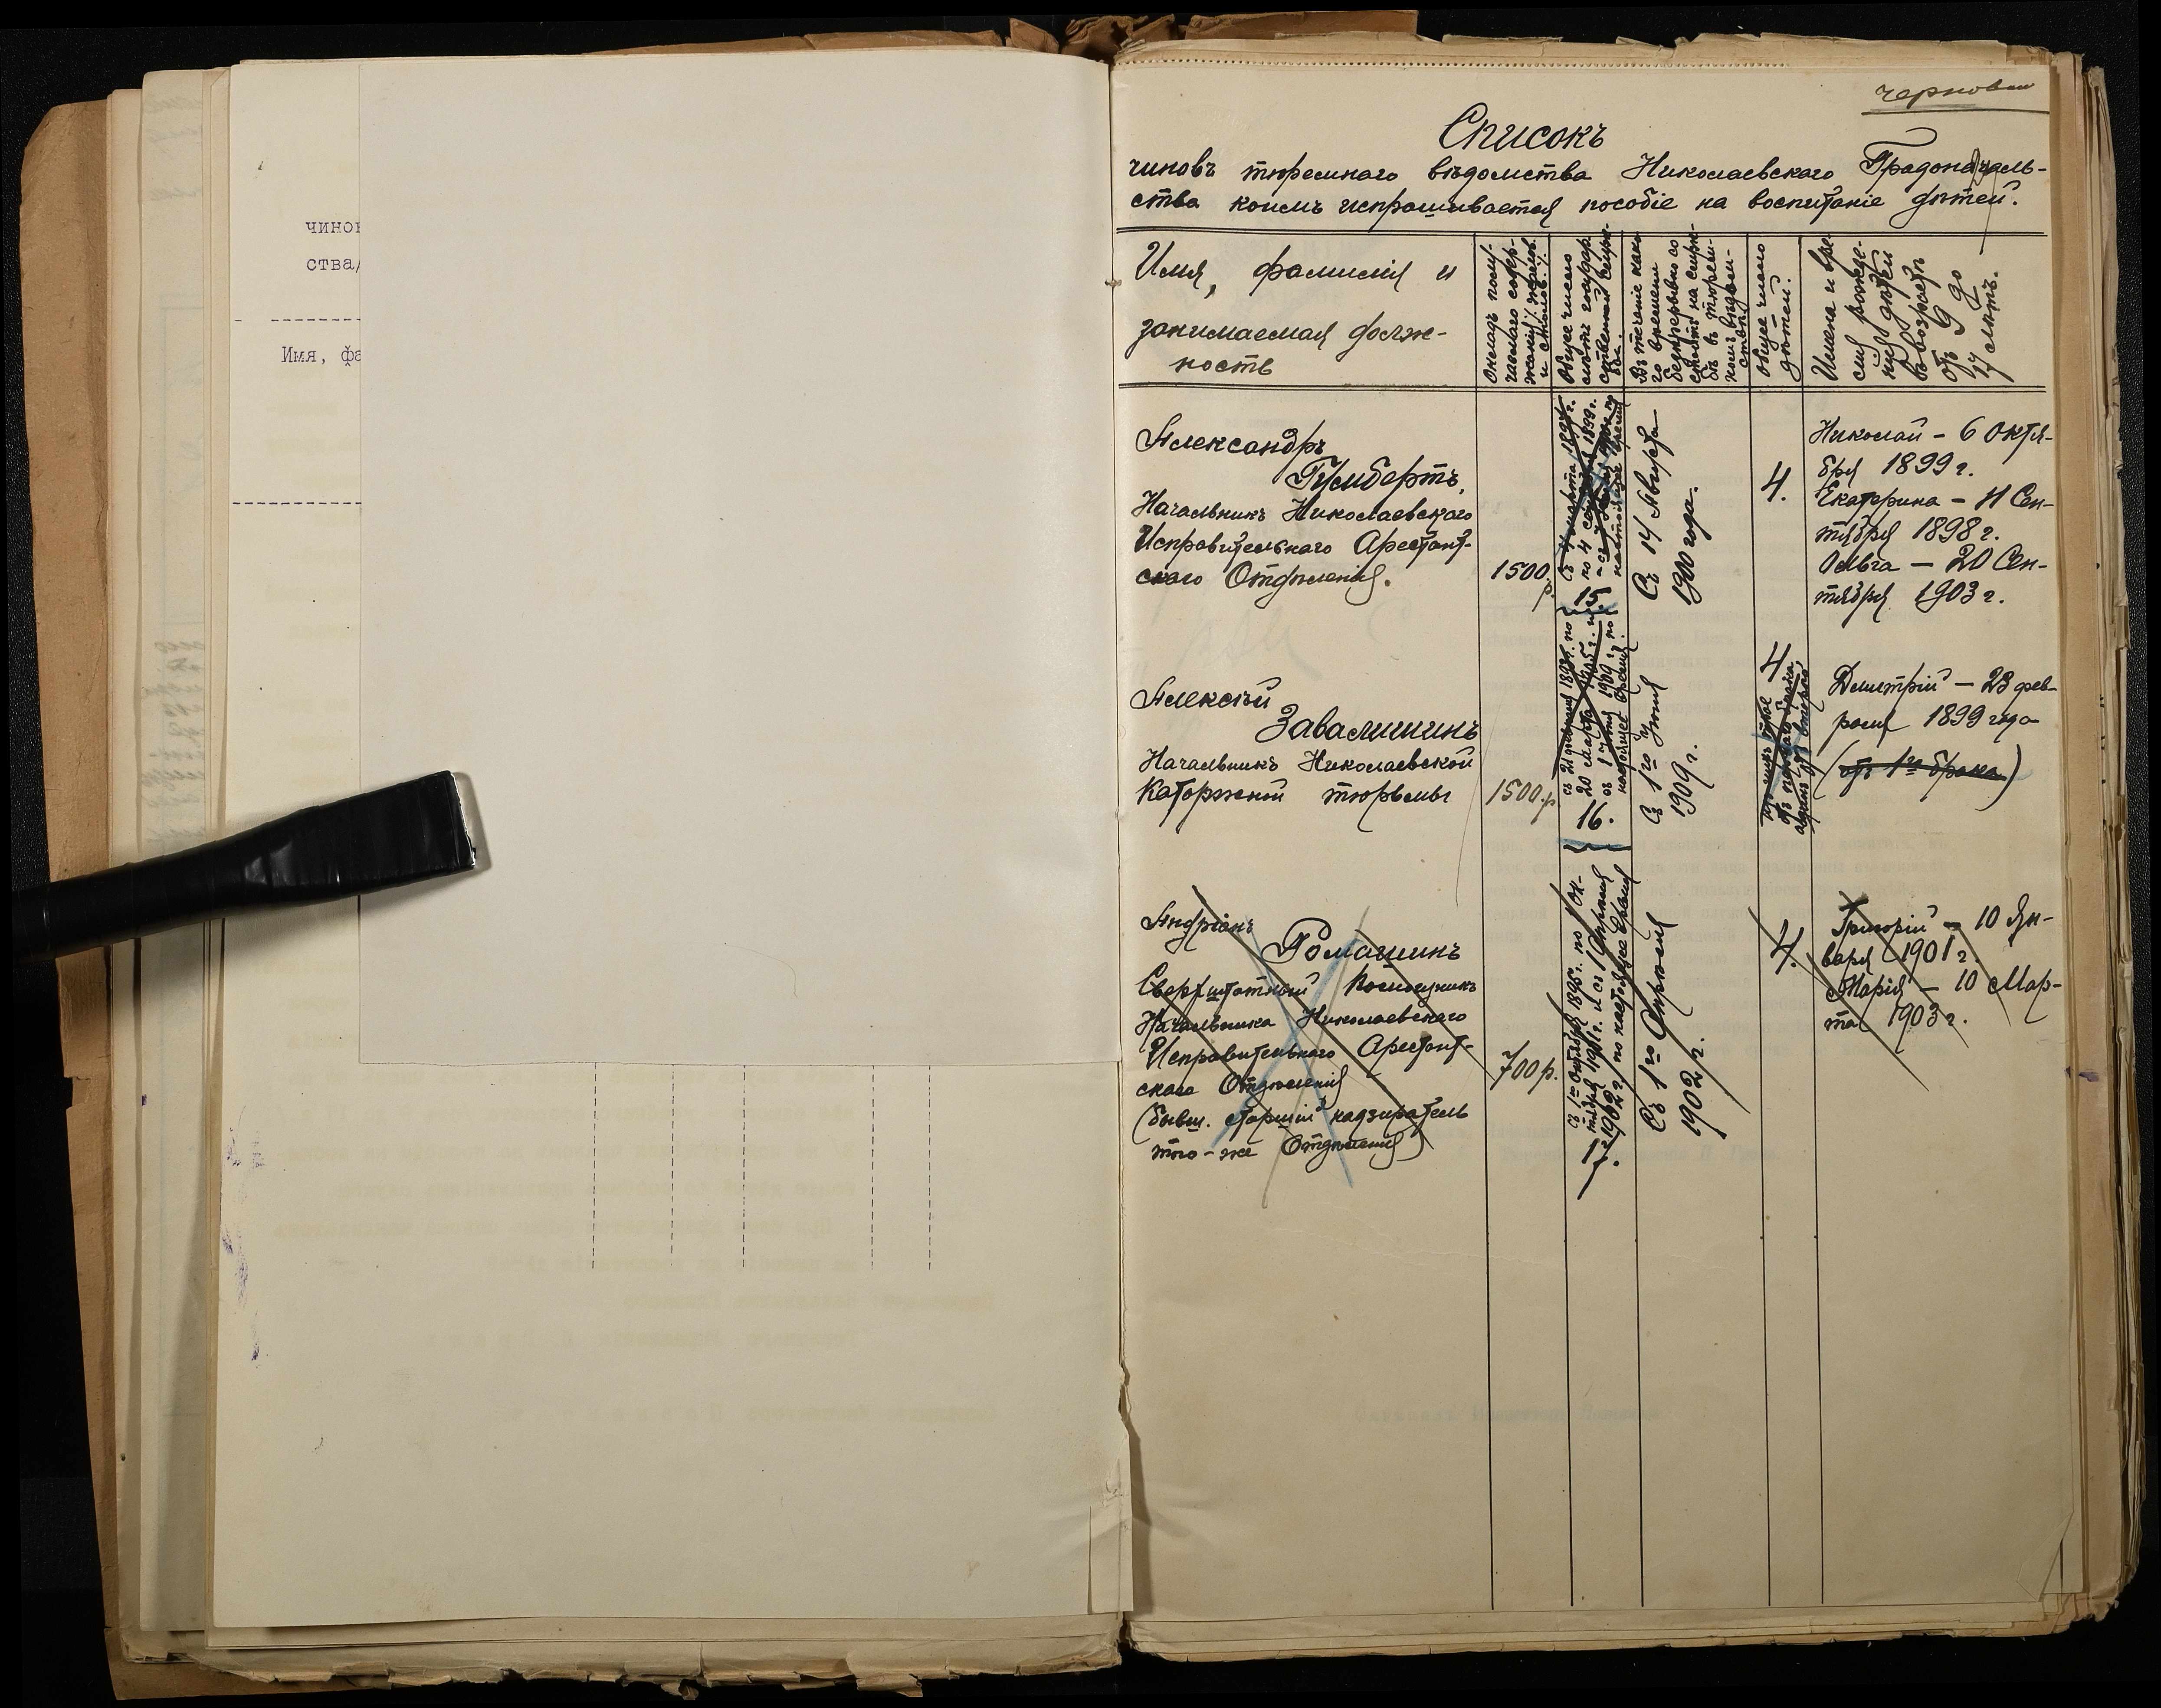 чинов
ства/
Имя, фа
чернов
Списокъ
чиновъ тюремнаго вѣдомства Николаевскаго Градоначаль-
ства коимъ испрашивается пособіе на воспитаніе дѣтей.
Имя, фамилія и
занимаемая долж-
ность
Окладъ полу-
чаемаго содер-
жанія
Общее число
лѣтъ государ-
ственной
Въ теченіе како-
го времени
безпрерывно со-
стоитъ на служ-
бѣ въ тюрем-
номъ вѣдом-
ствѣ
Общее число
дѣтей.
Имена и вре-
мя рожде-
нія дѣтей
въ возрастѣ
отъ 9 до
17 лѣтъ.
Александръ
Гумбертъ,
Начальникъ Николаевскаго
Исправительнаго Арестант-
скаго Отдѣленія.
1500 р.
по 4 1899 г.
настоящее время
15.
Съ 14 Августа
1900 года.
4.
Николай - 6 Октя-
бря 1899 г.
Екатерина - 11 Сен-
тября 1898 г.
Ольга - 20 Сен-
тября 1903 г.
Алексѣй
Завалишинъ
Начальникъ Николаевской
Каторжной тюрьмы
1500 р.
съ 21 по
20 марта
съ 1 1909 г. по
настоящее время.
16.
Съ 1го Іюня
1909 г.
4
отъ перваго брака,
Дмитрій - 23 фев-
раля 1899 года
(отъ 1го брака)
Андріанъ
Ромашинъ
Сверхштатный Помощникъ
Начальника Николаевскаго
Исправительнаго Арестант-
скаго Отдѣленія
(бывш. старшій надзиратель
того-же Отдѣленія)
700 р.
съ 1го Октября 1895 г. по 1 Ок-
тября 1901 г. и съ 1 Апрѣля
1902 г. по настоящее время
17.
Съ 1го Апрѣля
1902 г.
4.
Григорій - 10 Ян-
варя 1901 г.
Марія - 10 Мар-
та 1903 г.